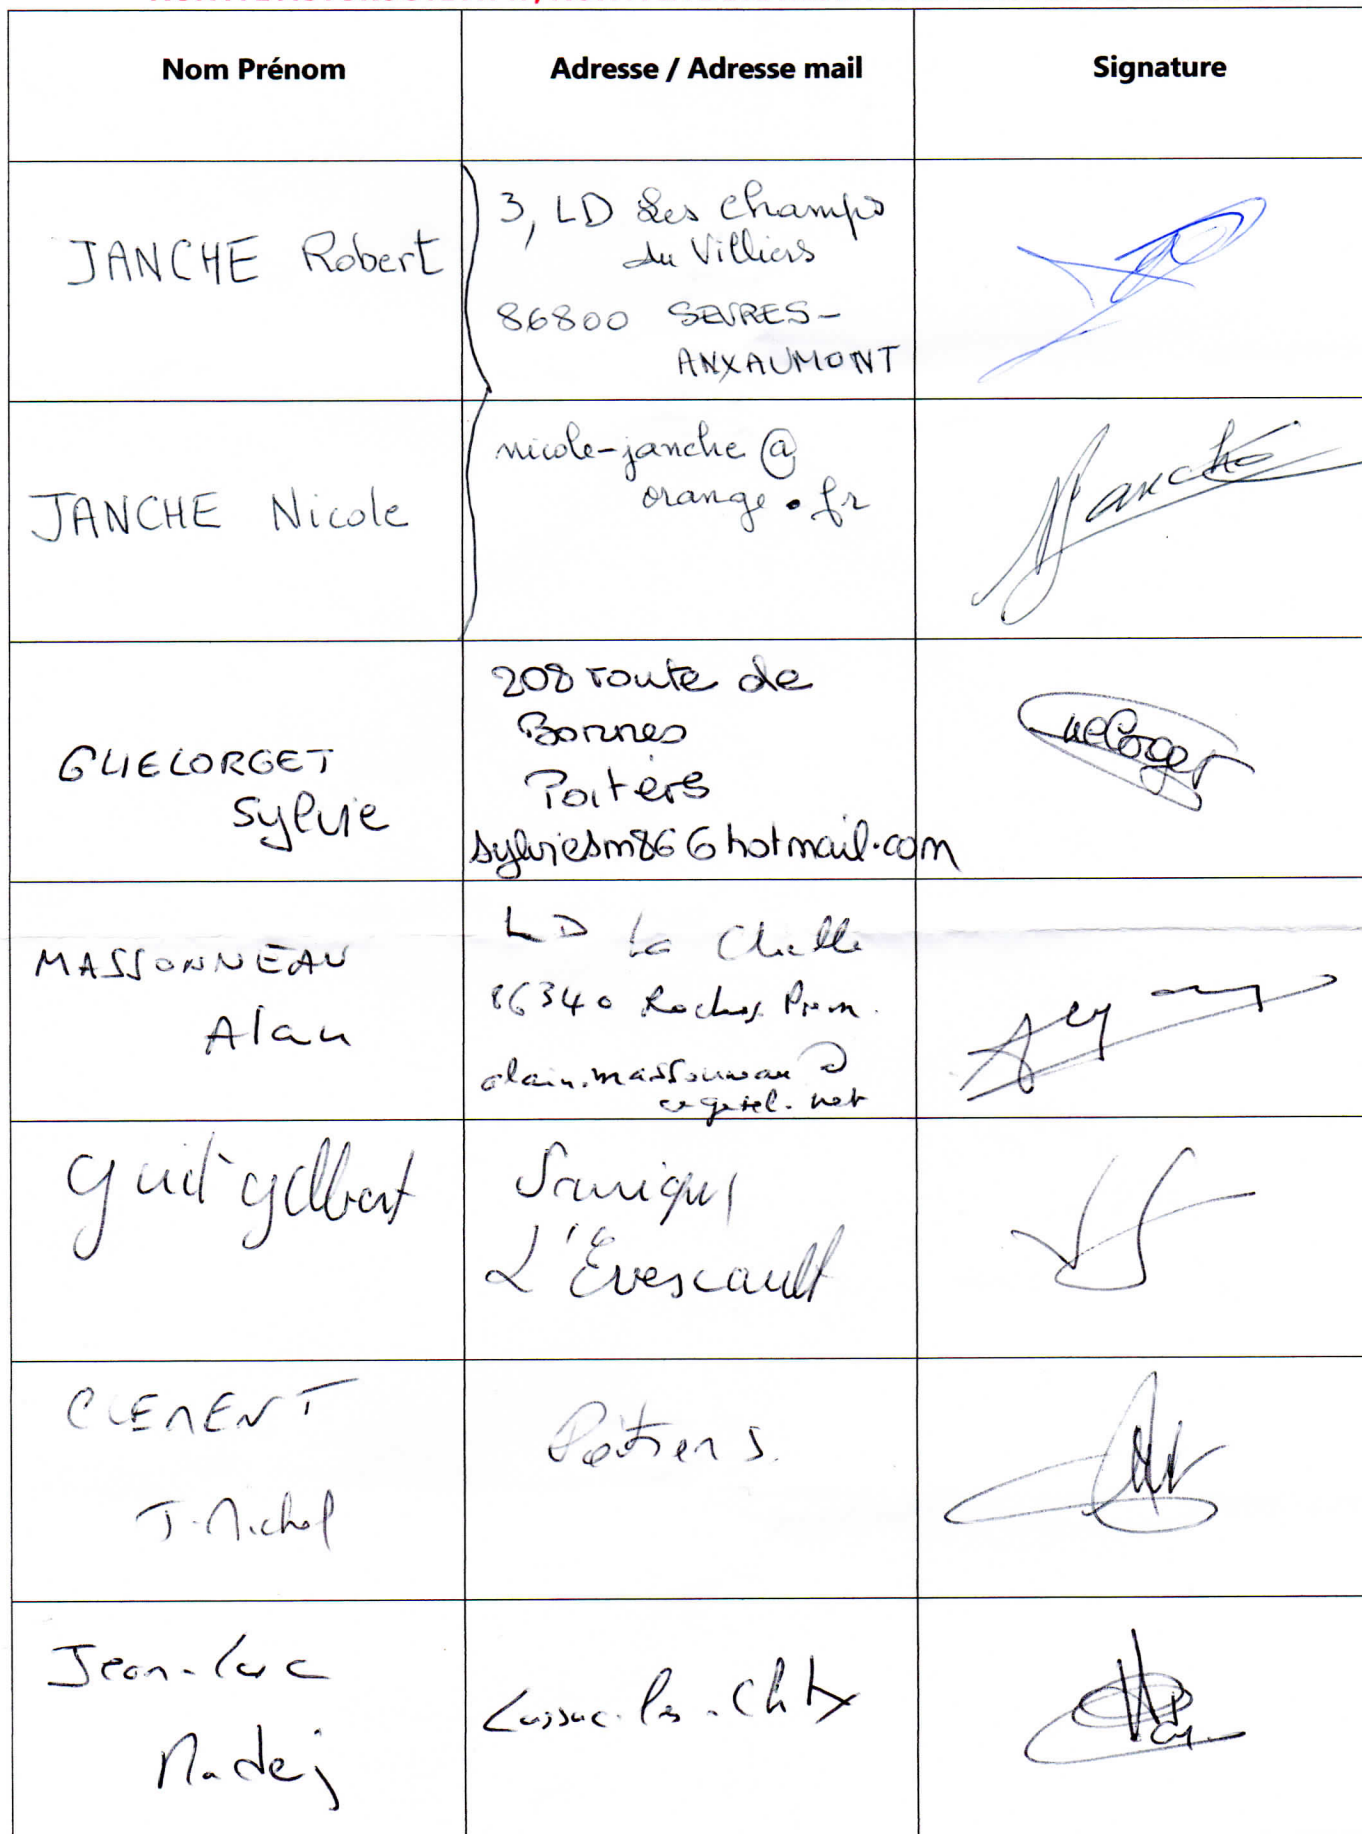 Nom Prénom
Adresse / Adresse mail
Signature
JANCHE Robert
3, LD Les Champs
du Villiers
86800 SEVRES-
ANXAUMONT
JANCHE Nicole
nicole-janche @
orange.fr
Janche
GUELORGET
Sylvie
208 route de
Bonnes
Poitiers
sylviesm86@hotmail.com
MASSONNEAU
Alain
LD La
86340 Roches Prem.
alain.massonneau @
cegetel.net
Gilbert
L'Evescault
CLEMENT
J-Michel
Poitiers.
Jean-Luc
Madej
Lussac-les-Chtx